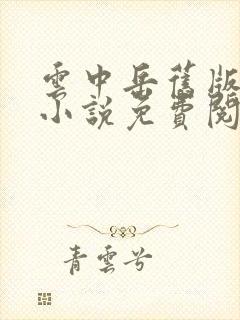 雲中岳舊版
小說免費閱
青雲兮